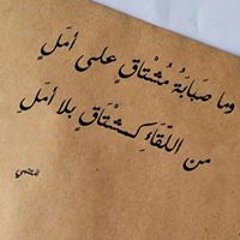 وما صَبَابَةُ مُشْتَاقٍ على أمَلٍ
من اللِّقَاءِ كمشْتَاقٍ بلا أمَلِ
المتنبي